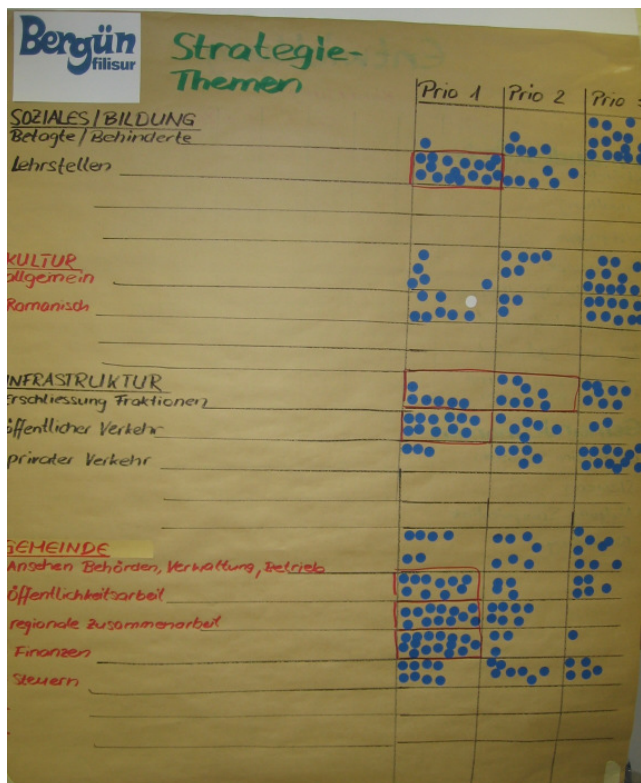 Bergün
filisur
Strategie-
Themen
Prio 1 Prio 2 Prio 3
SOZIALES/BILDUNG
Betagte/Behinderte
Lehrstellen
KULTUR
allgemein
Romanisch
INFRASTRUKTUR
Erschliessung Fraktionen
öffentlicher Verkehr
privater Verkehr
GEMEINDE
Ansehen Behörden, Verwaltung, Betrieb
Öffentlichkeitsarbeit
regionale Zusammenarbeit
Finanzen
Steuern